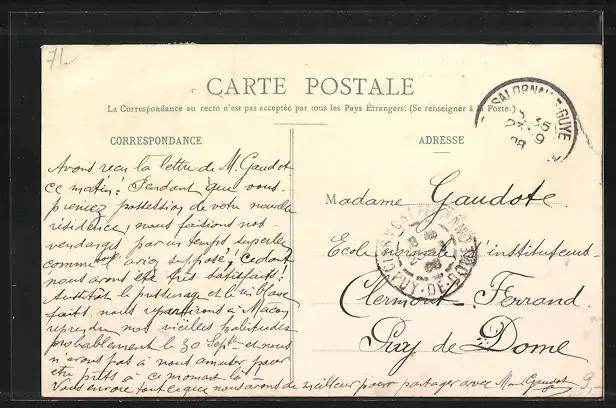 71
CARTE POSTALE
La Correspondance au recto n'est pas acceptée par tous les Pays Étrangers. (Se renseigner à la Poste.)
SALORNAY-S-GUYE
23-9
08
CORRESPONDANCE
ADRESSE
Avons reçu la lettre de M. Gaudot
ce matin! Pendant que vous
preniez possession de votre nouvelle
résidence, nous faisions nos
vendanges par un temps superbe
comme vous aviez supposé! ce dont
nous avons été très satisfaits!
Aussitôt le pressurage et le vin blanc
faits, nous repartirons à Macon
reprendre nos vieilles habitudes
probablement le 30 Sept. et nous
n'avons pas à nous amuser pour
être prêts à ce moment là —
Vous envoie tout ce que nous avons de meilleur pour partager avec M. Gaudot
Madame Gaudote
Ecole normale d'instituteurs
Clermont-Ferrand
Puy de Dome
CLERMONT-FERRAND
PUY-DE-DOME
9.-